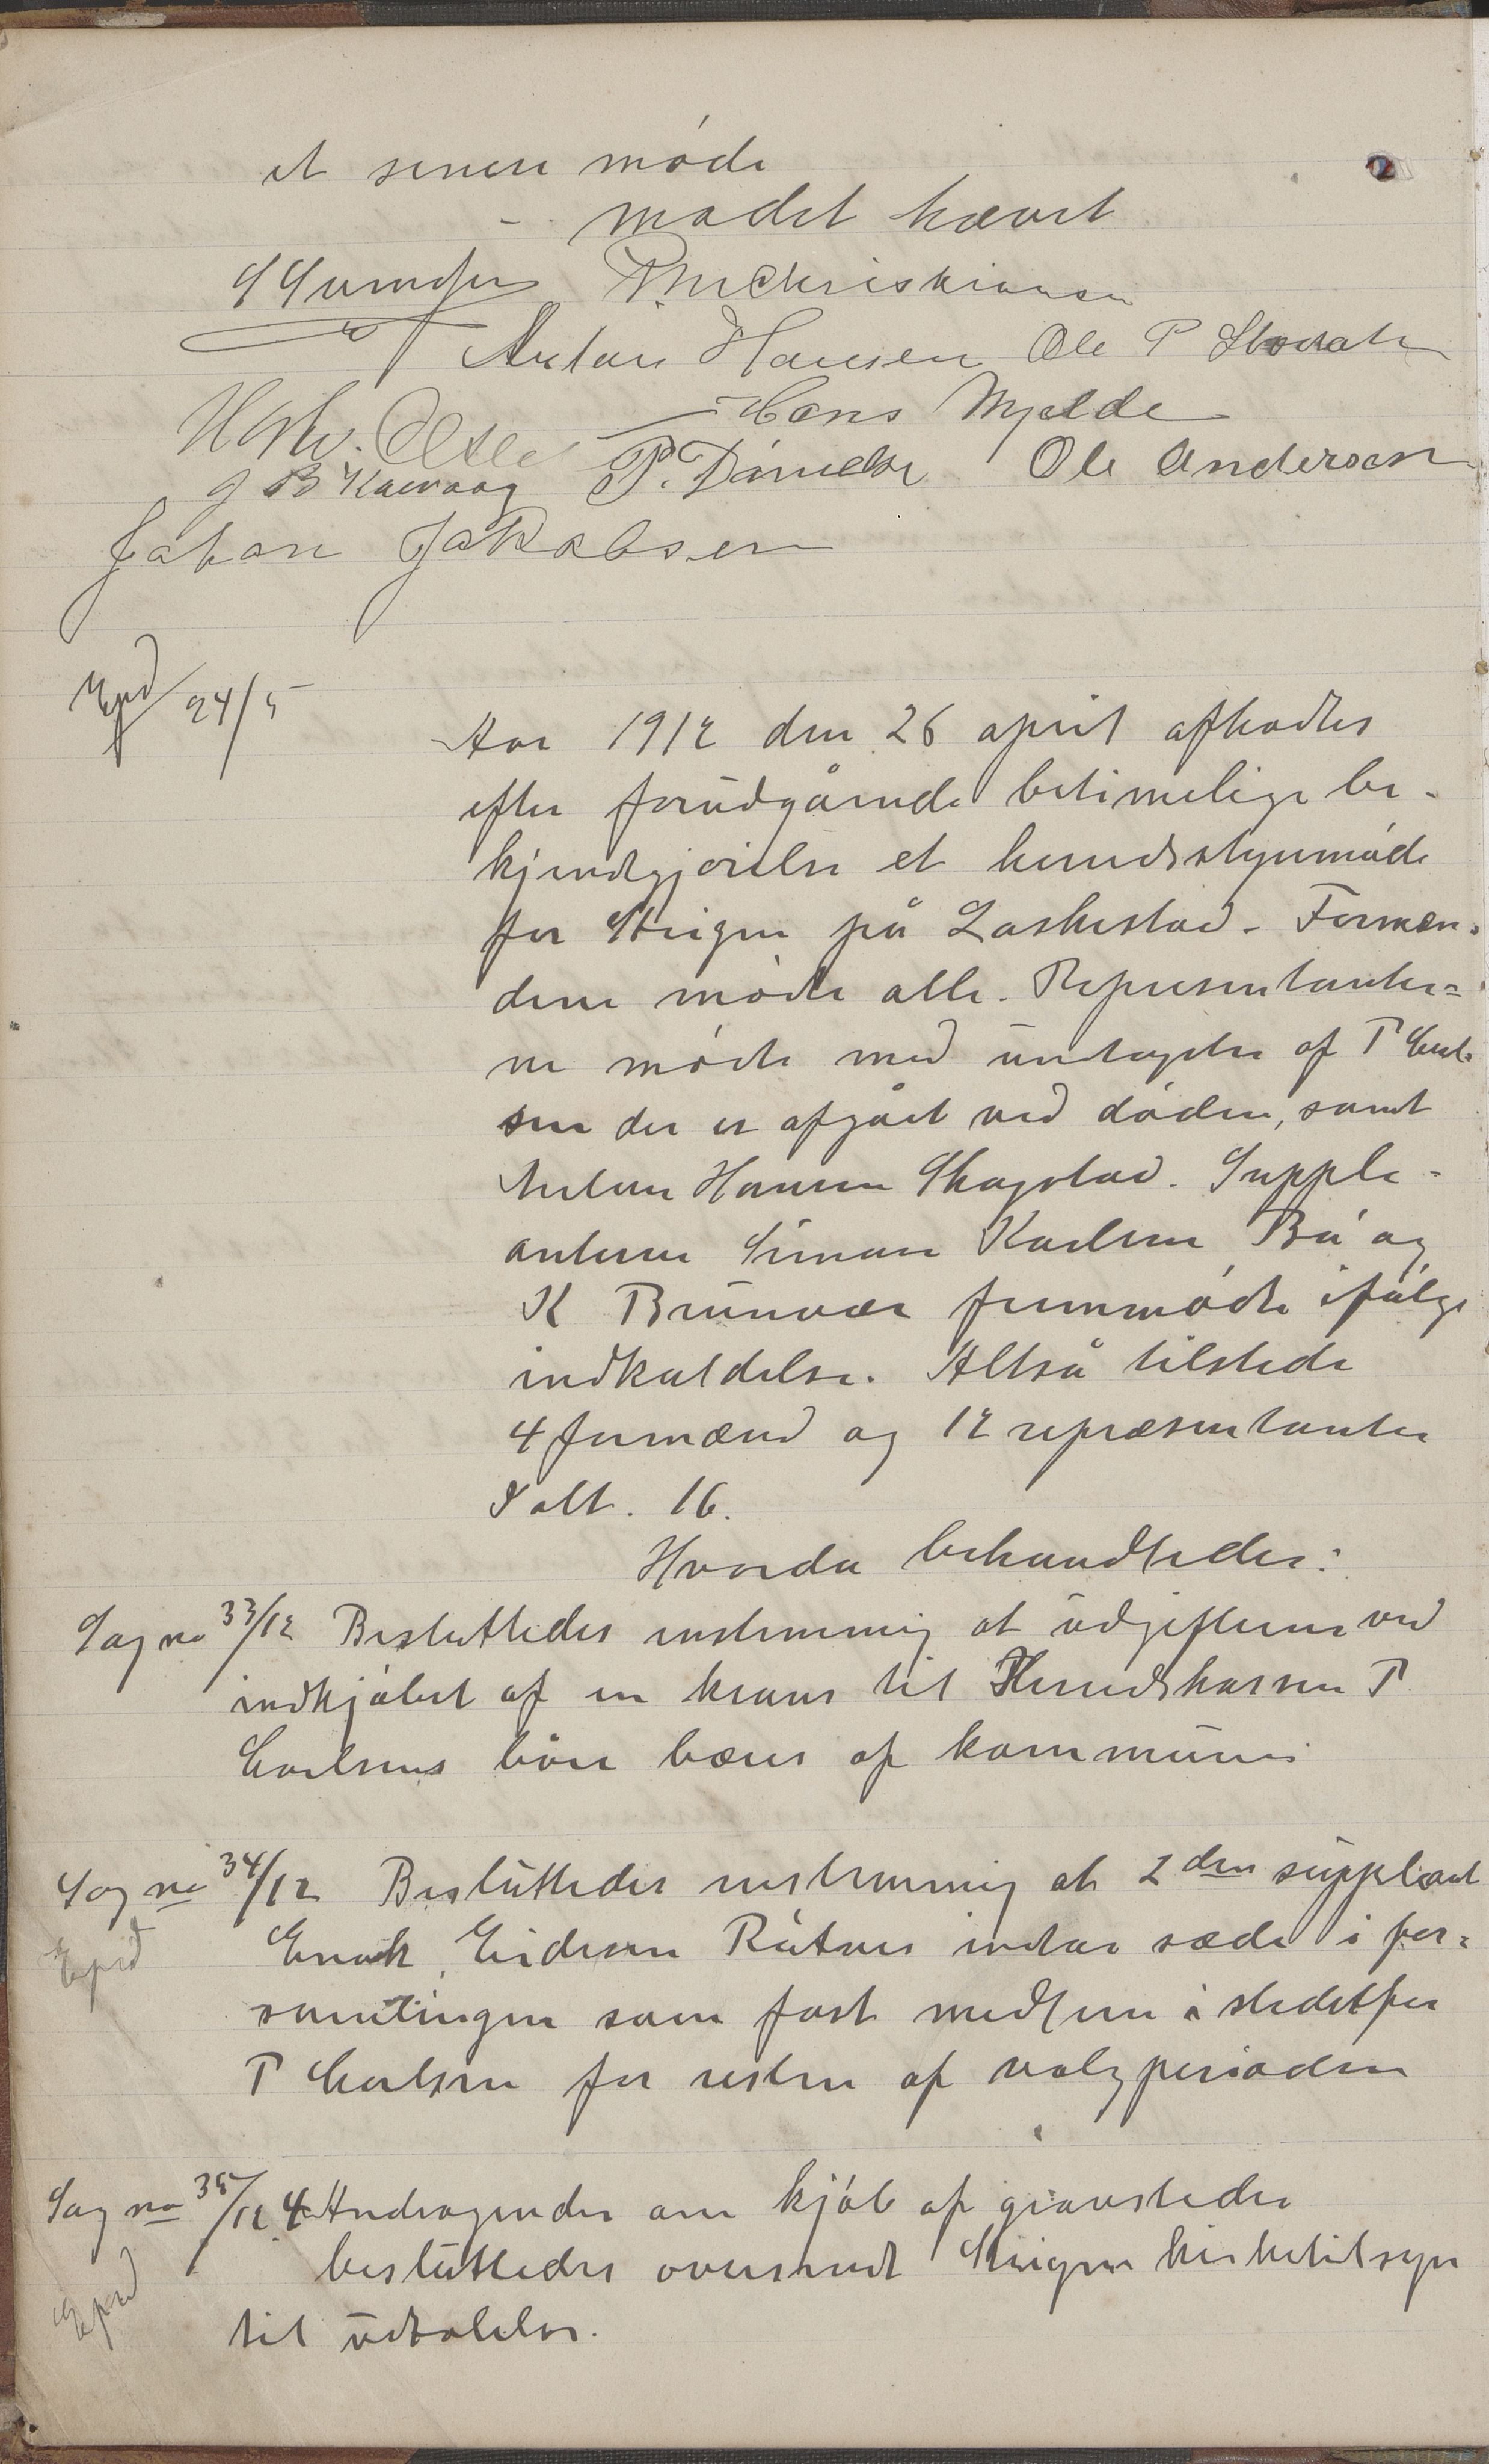 et senere møde
mødet hævet
Chr Christiansen
Anton Hansen Ole P
Hans Mjelde
P. Danielse Ole Andersen
Johan Jakobsen
Exprd 24/5
Aar 1912 den 26 april afholdtes
efter forudgående betimelige be-
kjendtgjørelse et heredsstyremøde
for Steigen på Laskestad. Formæn-
dene mødte alle. Representanter=
ne mødte med undtagelse af P Carl-
sen der er afgået ved døden, samt
Anton Hansen Skagstad. Supple-
anterne Simon Karlsen Bø og
K Brunvær fremmødte ifølge
indkaldelse. Altså tilstede
4 formænd og 12 repræsentanter
I alt. 16.
Hvorda behandledes:
Sag no 33/12 Besluttedes enstemmig at udgifterne ved
indkjøbet af en krans til Heredskassere P
Carlsens båre bæres af kommunen
Sag no 34/12 Besluttedes enstemmig at 2den suppleant
Exprd
Enok Eidesen Råtnes indtar sæde i for=
samlingen som fast medlem i stedetfor
P Carlsen for resten af valgperioden
Sag no 35/12 4 Andragender om kjøb af gravsteder
Exprd
besluttedes oversendt Steigen kirketilsyn
til udtalelse.